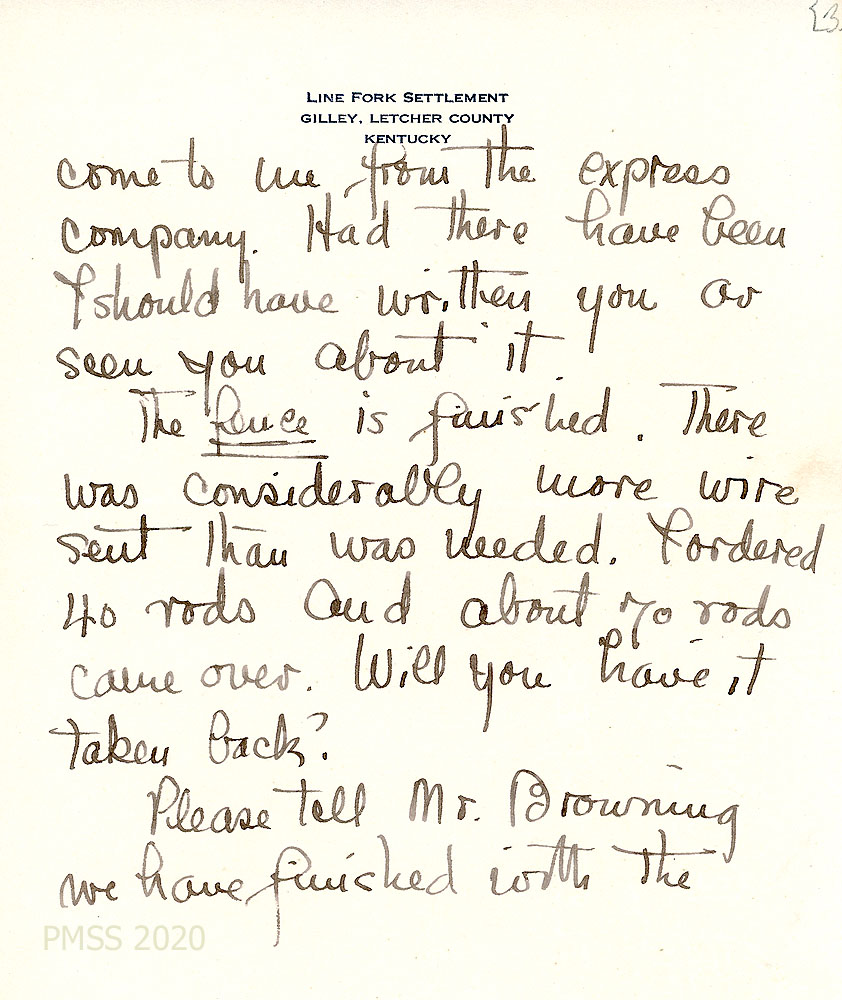 {3.
LINE FORK SETTLEMENT
GILLEY, LETCHER COUNTY
KENTUCKY
come to me from the express
company. Had there have been
I should have written you or
seen you about it.
The fence is finished. There
was considerably more wire
sent than was needed. I ordered
40 rods and about 70 rods
came over. Will you have it
taken back?
Please tell Mr. Browning
we have finished with the
PMSS 2020